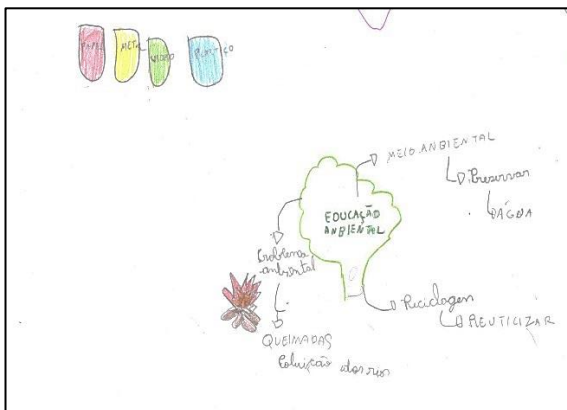 PAPEL METAL VIDRO PLASTIÇO
MEIO ANBIENTAL
Preservar
ÁGUA
EDUCAÇÃO
ANBIENTAL
Problema
ambiental
Reciclagen
REUTILIZAR
QUEIMADAS
Poluição dos rios